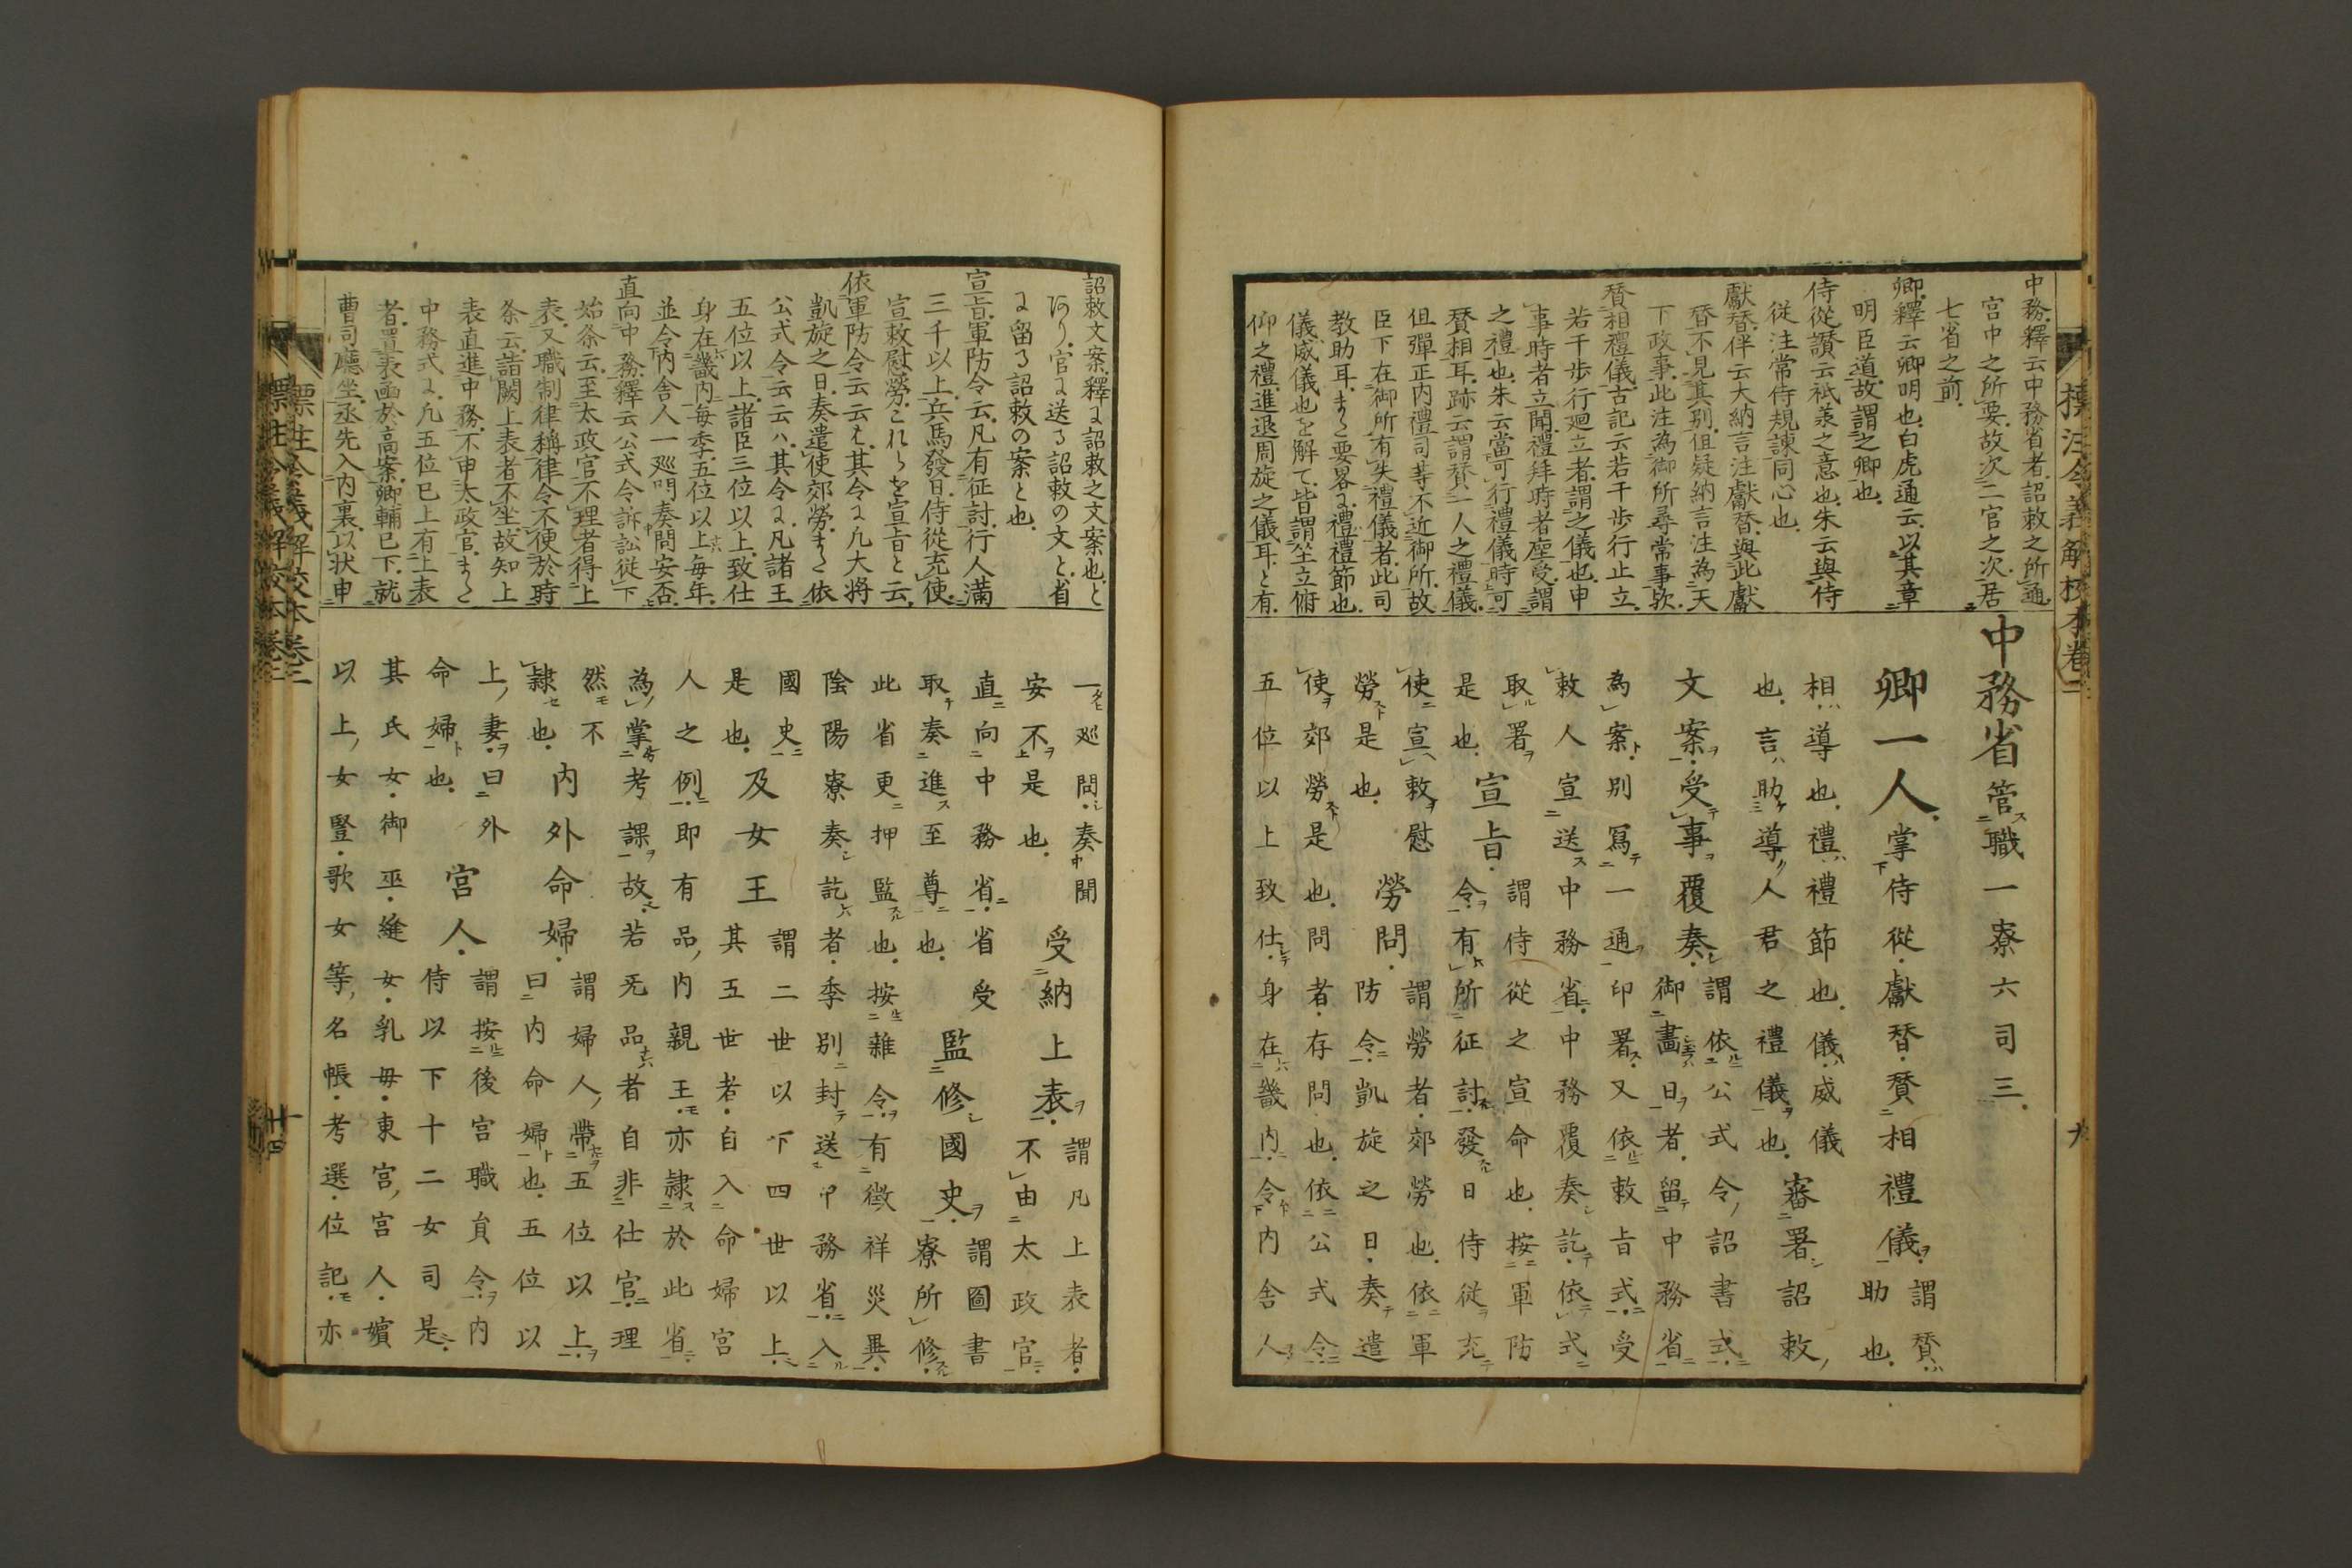 標注令義解校本卷二
九
中務釋云中務省者詔敕之所通
宮中之所要故次二官之次居
七省之前
卿釋云卿明也白虎通云以其章
明臣道故謂之卿也
侍從讚云祇羕之意也朱云與侍
從注常侍規諫同心也
獻替伴云大納言注獻替與此獻
替不見其別但疑納言注為天
下政事此注為御所尋常事歟
賛相禮儀古記云若干步行止立
若干步行廻立者謂之儀也申
事時者立聞禮拜時者座受謂
之禮也朱云當可行禮儀時可
賛相耳跡云謂賛一人之禮儀
但彈正内禮司等不近御所故
臣下在御所有失禮儀者此司
教助耳また要畧に禮禮節也
儀威儀也を解て皆謂坐立俯
仰之禮進退周旋之儀耳と有
中務省管職一寮六司三
卿一人掌侍從獻替賛相禮儀謂賛
助也
相導也禮禮節也儀威儀
也言助導人君之禮儀也審署詔敕
文案受事覆奏謂依公式令詔書式
御畫日者留中務省
為案別寫一通印署又依敕旨式受
敕人宣送中務省中務覆奏訖依式
取署
是也宣旨謂侍從之宣命也按軍防
令有所征討發日侍從充
使宣敕慰
勞是也勞問謂勞者郊勞也依軍
防令凱旋之日奏遣
使郊勞是也問者存問也依公式令
五位以上致仕身在畿内令内舍人
詔敕文案釋に詔敕之文案也と
あり官に送る詔敕の文と省
に留る詔敕の案と也
宣旨軍防令云凡有征討行人滿
三千以上兵馬發日侍從充使
宣敕慰勞これらを宣旨と云
依軍防令云云は其令に凡大将
凱旋之日奏遣使郊勞また依
公式令云云ハ其令に凡諸王
五位以上諸臣三位以上致仕
身在畿内毎季五位以上毎年
並令内舍人一巡問奏聞安否
直向中務釋云公式令訴訟從下
始条云至太政官不理者得上
表又職制律稱律令不便於時
条云詣闕上表者不坐故知上
表直進中務不申太政官また
中務式に凡五位已上有上表
者置表函於高案卿輔已下就
曹司廳坐丞先入内裏以狀申
一巡問奏聞
安不是也受納上表謂凡上表者
不由太政官
直向中務省省受
取奏進至尊也監修國史謂圖書
寮所修
此省更押監也按雜令有徵祥災異
陰陽寮奏訖者季別封送中務省入
國史
是也及女王謂二世以下四世以上
其五世者自入命婦宮
人之例即有品内親王亦隷於此省
為掌考課故若无品者自非仕官理
然不
隷也内外命婦謂婦人帶五位以上
曰内命婦也五位以
上妻曰外
命婦也宮人謂按後宮職員令内
侍以下十二女司是
其氏女御巫縫女乳母東宮宮人嬪
以上女豎歌女等名帳考選位記亦
標注令義解校本卷二